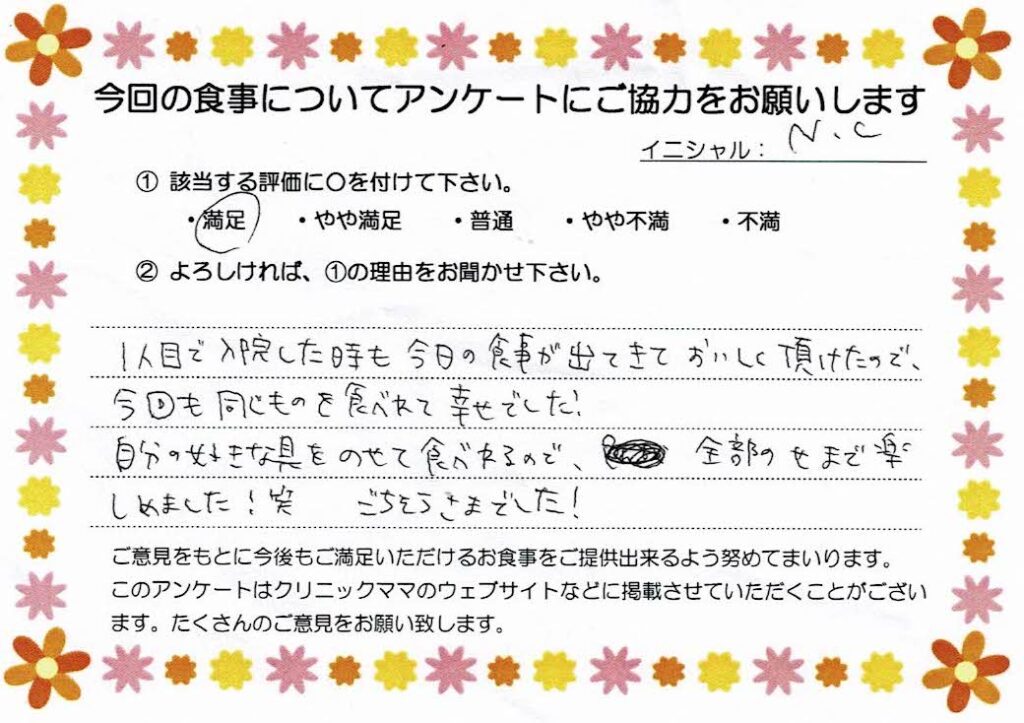 今回の食事についてアンケートにご協力をお願いします
イニシャル： N.C
① 該当する評価に〇を付けて下さい。
・満足 ・やや満足 ・普通 ・やや不満 ・不満
② よろしければ、①の理由をお聞かせ下さい。
1人目で入院した時も今日の食事が出てきておいしく頂けたので、
今回も同じものを食べれて幸せでした!
自分の好きな具をのせて食べれるので、 全部のせまで楽
しめました!笑 ごちそうさまでした!
ご意見をもとに今後もご満足いただけるお食事をご提供出来るよう努めてまいります。
このアンケートはクリニックママのウェブサイトなどに掲載させていただくことがござい
ます。たくさんのご意見をお願い致します。